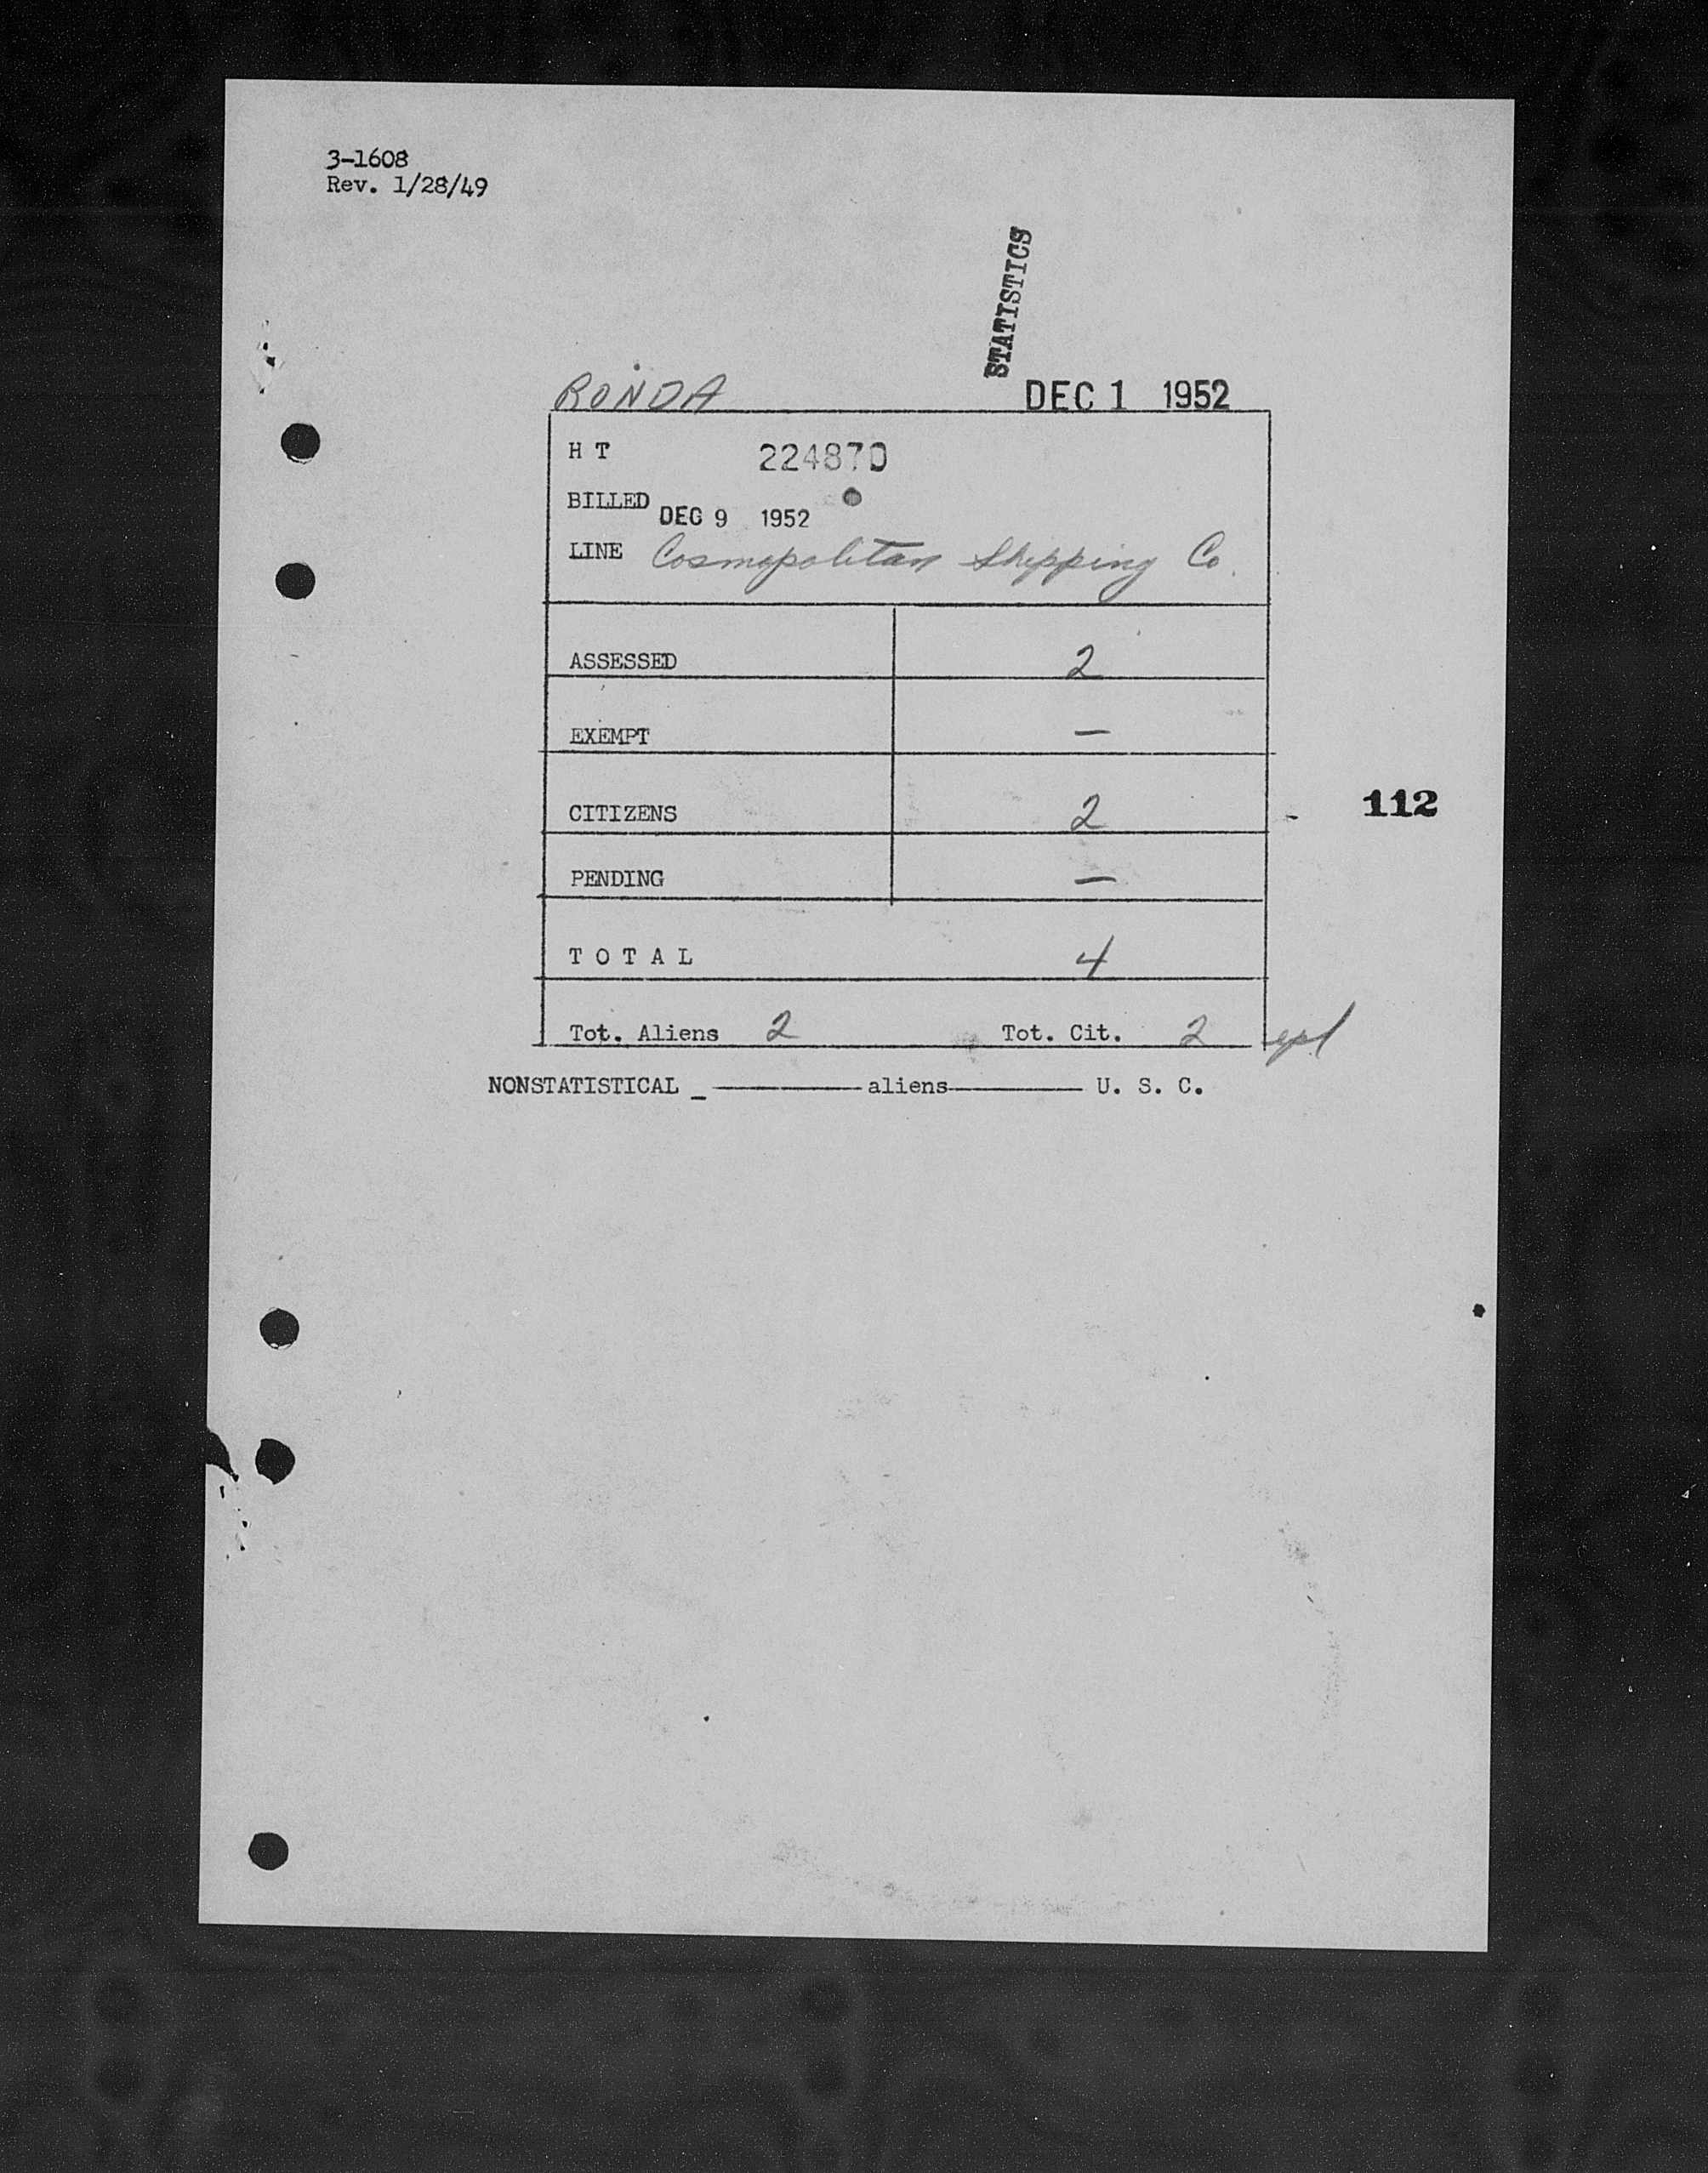 3-1608
Rev. 1/28/49
STATISTICS
RONDA DEC 1 1952
H T 224870
BILLED DEC 9 1952
LINE Cosmopolitan Shipping Co.
ASSESSED 2
EXEMPT —
CITIZENS 2
112
PENDING —
T O T A L 4
Tot. Aliens 2 Tot. Cit. 2
NONSTATISTICAL _ ———— aliens ———— U. S. C.